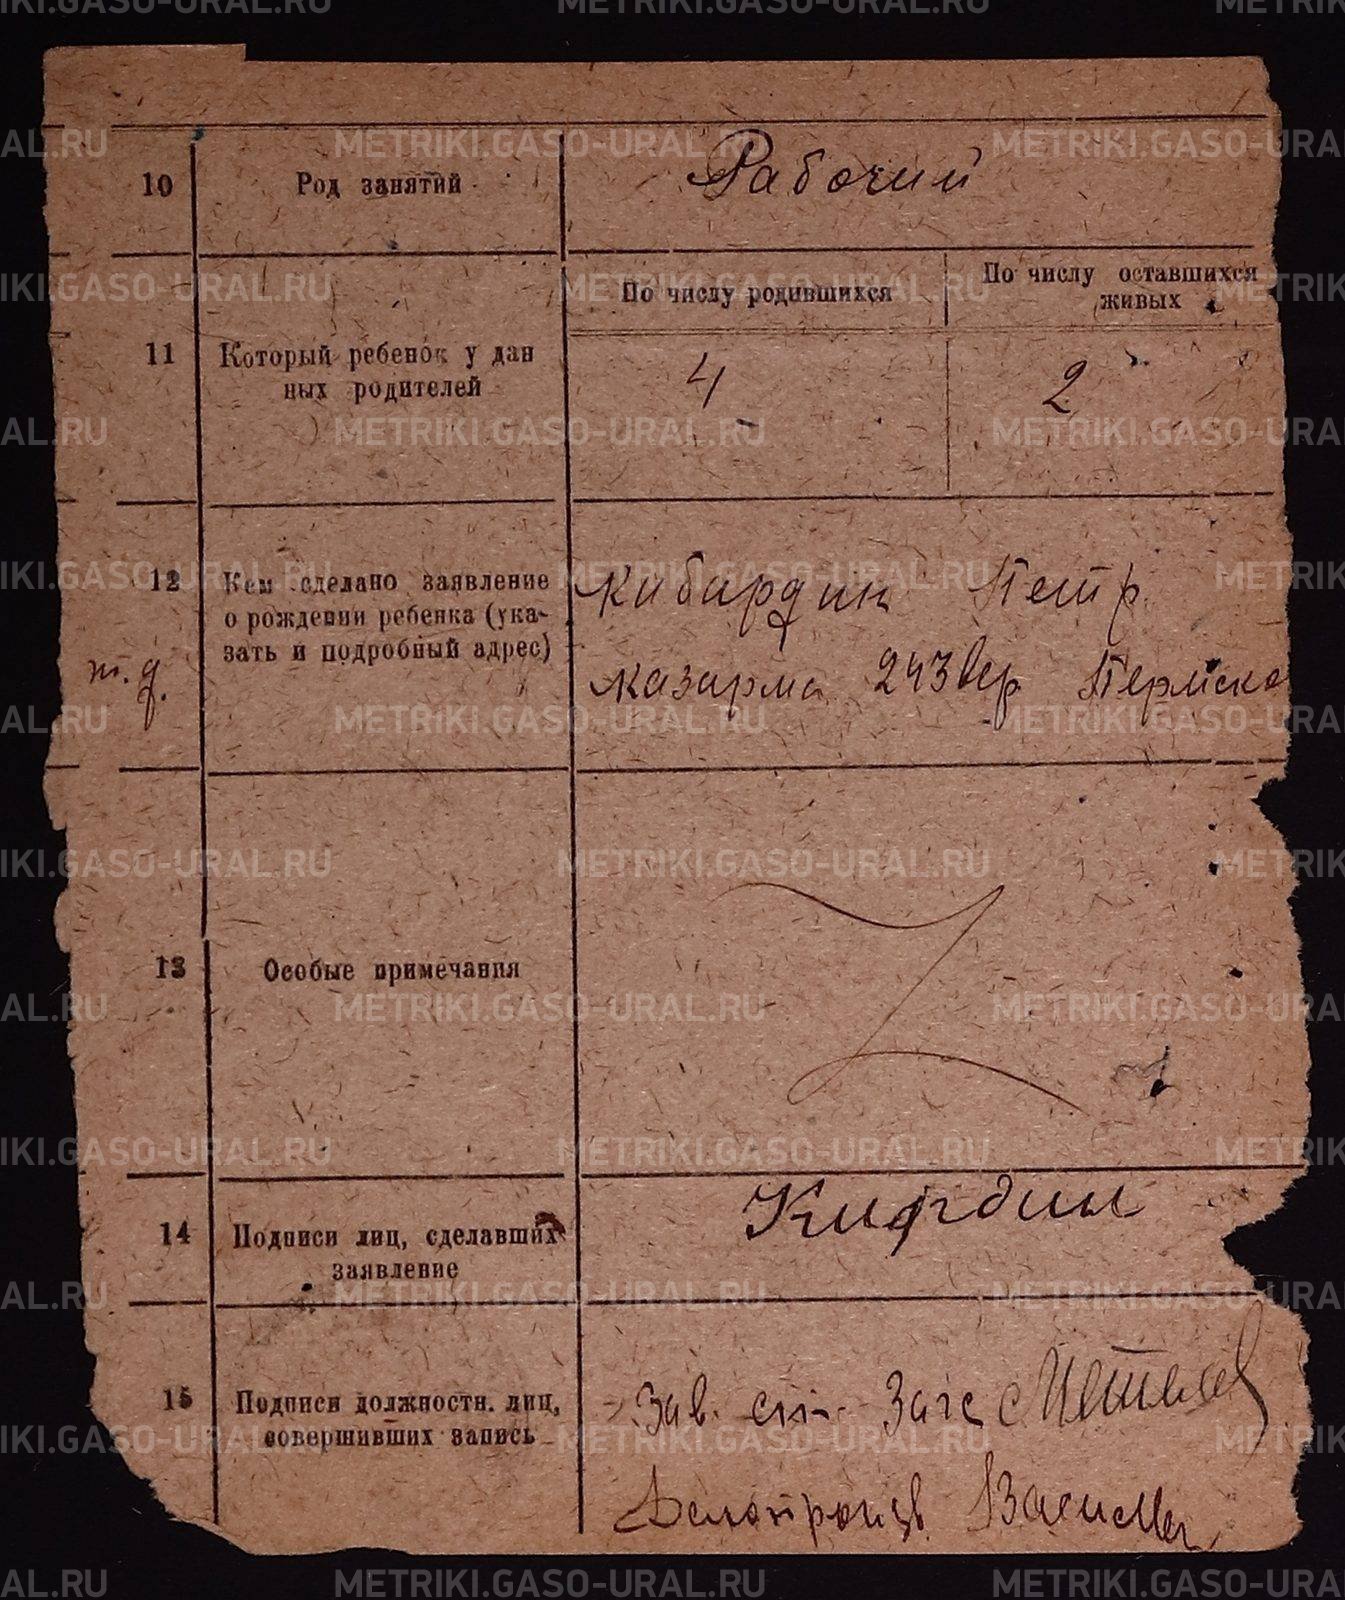 10 Род занятий Рабочий
11 Который ребенок у дан
ных родителей
По числу родившихся
По числу оставшихся
живых
4 2
12 Кем сделано заявление
о рождении ребенка (ука-
зать и подробный адрес)
Кабардин Петр
казарма 243 вер Пермско
т.д.
13 Особые примечания
14 Подписи лиц, сделавших
заявление
15 Подписи должностн. лиц,
совершивших запись
Зав. ст. Загс
Делопроизв.
METRIKI.GASO-URAL.RU